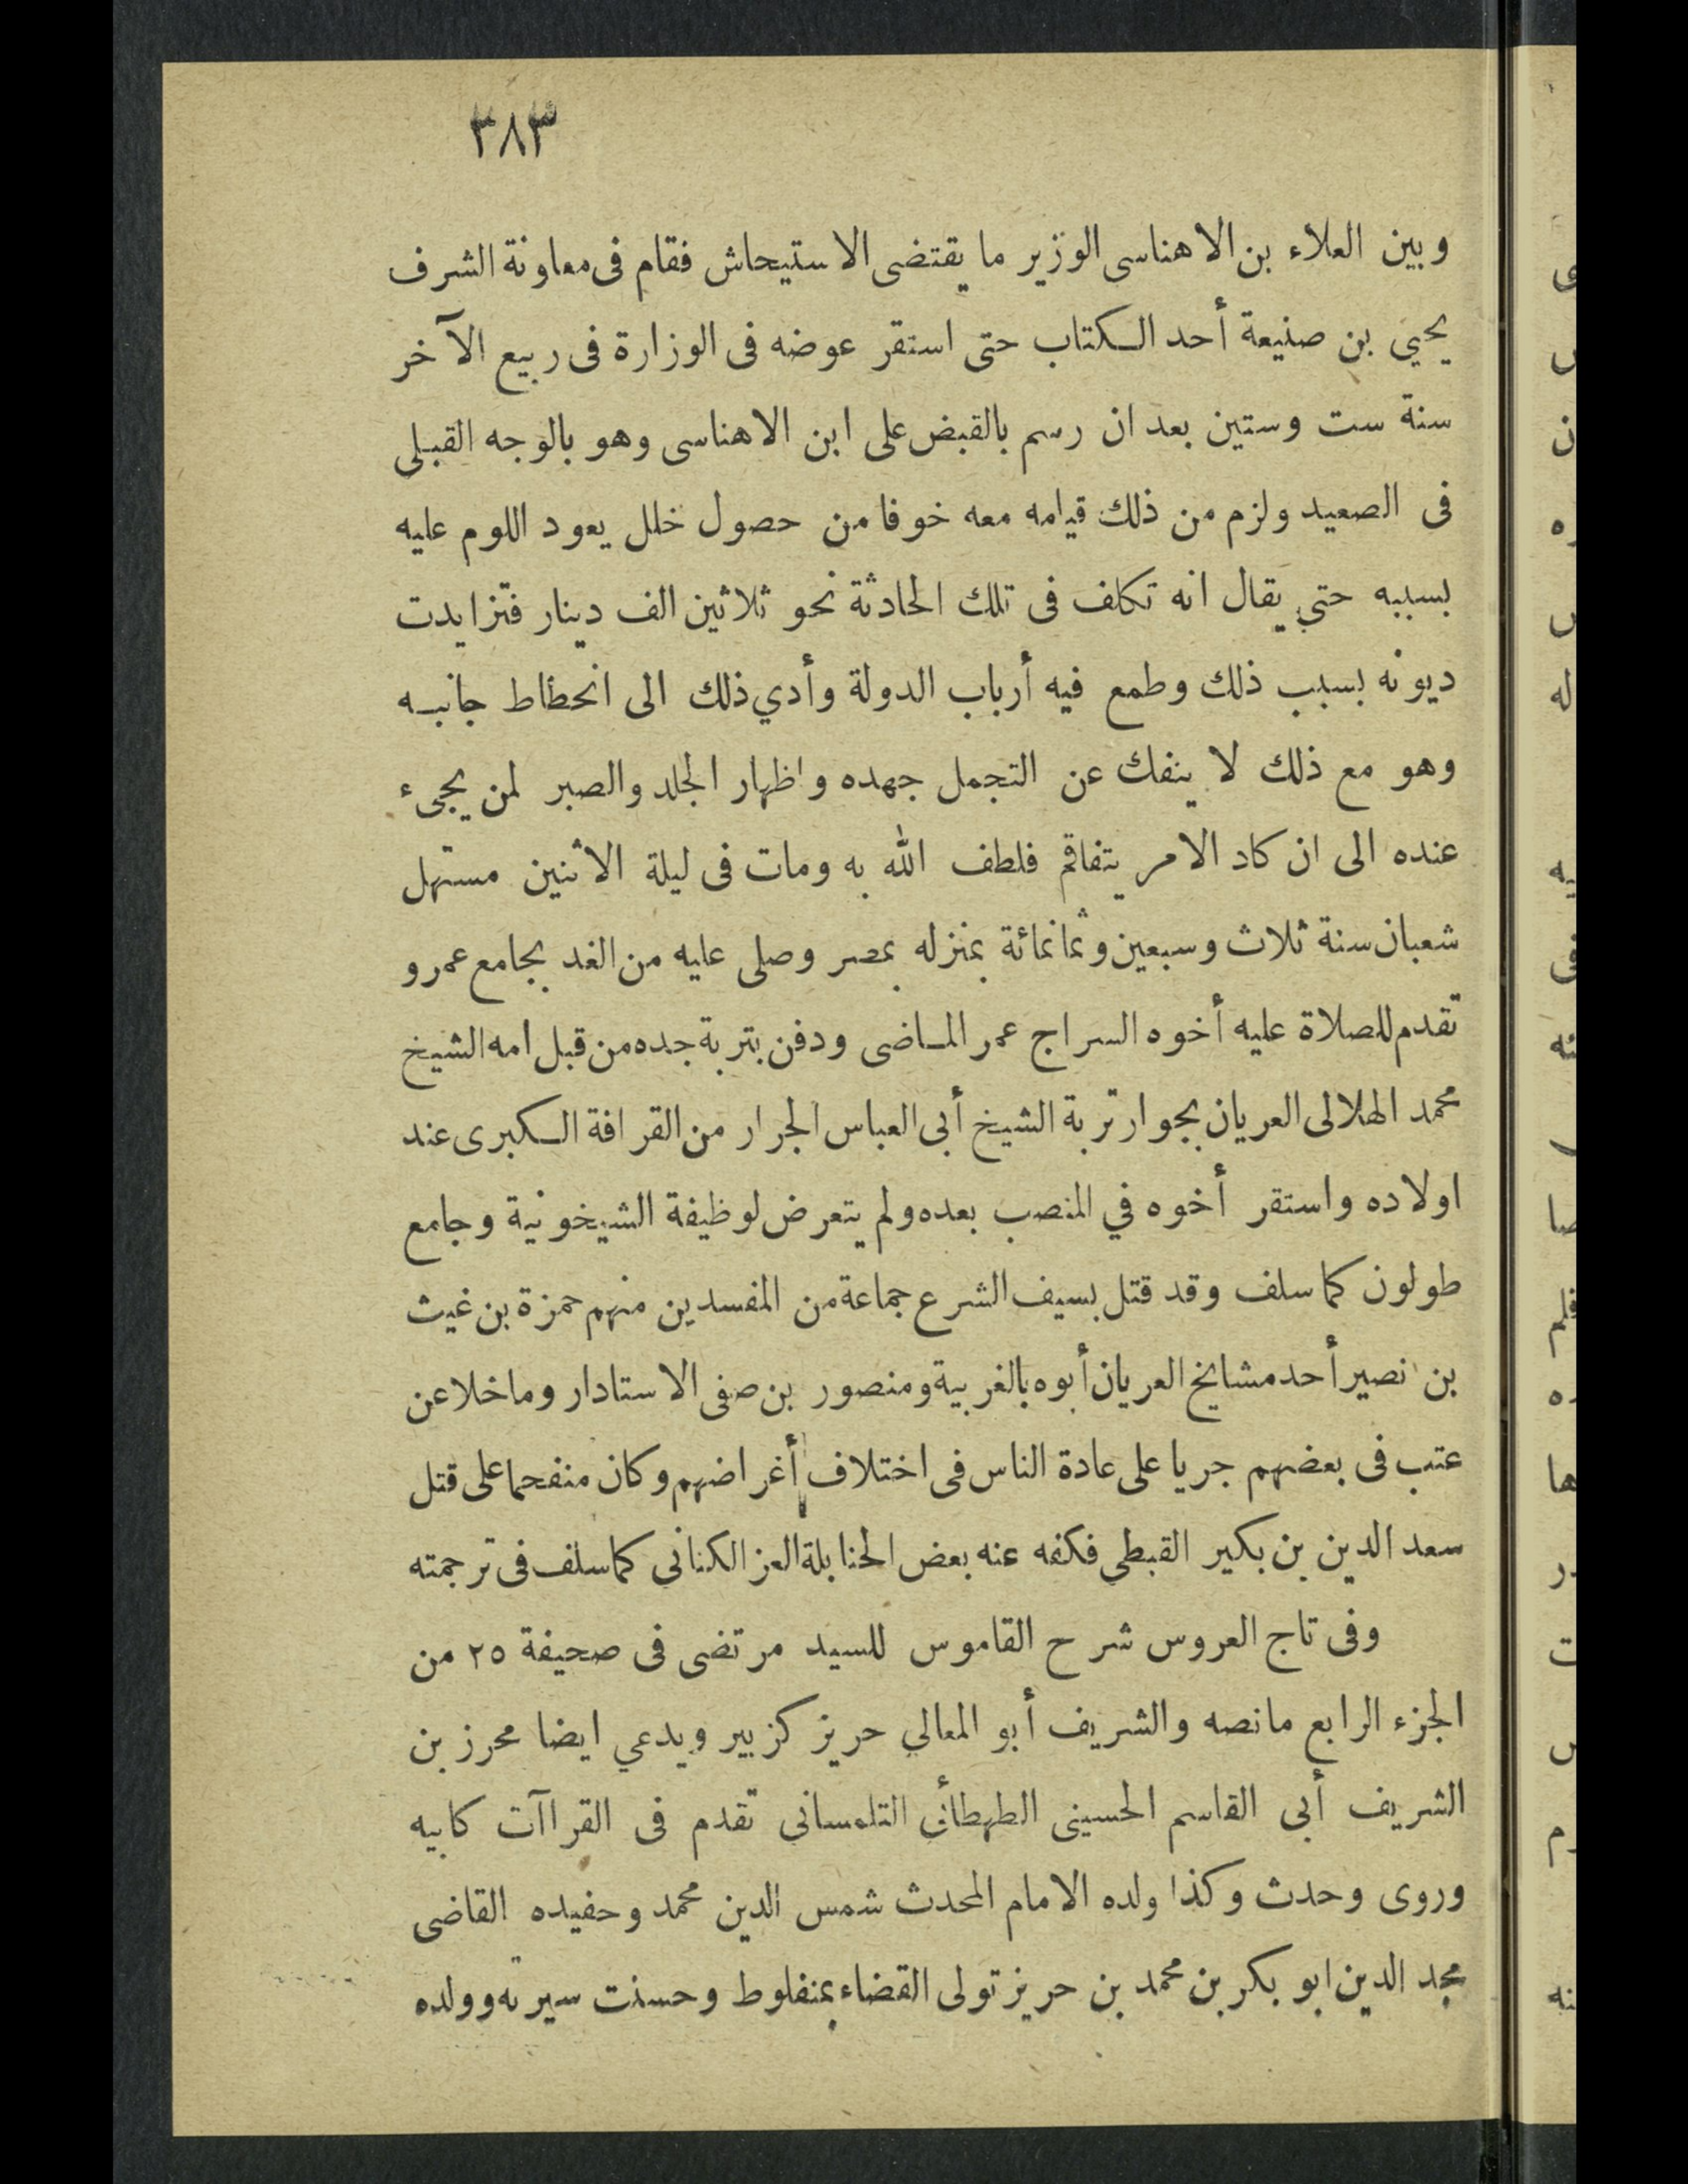 ٣٨٣
وبين العلاء بن الاهناسى الوزير ما يقتضى الاستيحاش فقام فى معاونة الشرف
يحيي بن صنيعة أحد الكتاب حتى استقر عوضه فى الوزارة فى ربيع الآخر
سنة ست وستين بعد ان رسم بالقبض على ابن الاهناسى وهو بالوجه القبلى
فى الصعيد ولزم من ذلك قيامه معه خوفا من حصول خلل يعود اللوم عليه
بسببه حتي يقال انه تكلف فى تلك الحادثة نحو ثلاثين الف دينار فتزايدت
ديونه بسبب ذلك وطمع فيه أرباب الدولة وأدي ذلك الى انحطاط جانبه
وهو مع ذلك لا ينفك عن التجمل جهده واظهار الجلد والصبر لمن يجىء
عنده الى ان كاد الامر يتفاقم فلطف الله به ومات فى ليلة الاثنين مستهل
شعبان سنة ثلاث وسبعين وثمانمائة بمنزله بمصر وصلى عليه من الغد بجامع عمرو
تقدم للصلاة عليه أخوه السراج عمر الماضى ودفن بتربة جده من قبل امه الشيخ
محمد الهلالى العريان بجوار تربة الشيخ أبى العباس الجرار من القرافة الكبرى عند
اولاده واستقر أخوه في المنصب بعده ولم يتعرض لوظيفة الشيخونية وجامع
طولون كما سلف وقد قتل بسيف الشرع جماعة من المفسدين منهم حمزة بن غيث
بن نصير أحد مشايخ العريان أبوه بالغربية ومنصور بن صفى الاستادار وما خلا عن
عتب فى بعضهم جريا على عادة الناس فى اختلاف أغراضهم وكان منفحما على قتل
سعد الدين بن بكير القبطي فكفه عنه بعض الحنابلة العز الكنانى كما سلف فى ترجمته
وفى تاج العروس شرح القاموس للسيد مرتضى فى صحيفة ٢٥ من
الجزء الرابع مانصه والشريف أبو المعالي حريز كزبير ويدعي ايضا محرز بن
الشريف أبى القاسم الحسينى الطهطأئى التلمسانى تقدم فى القراآت كابيه
وروى وحدث وكذا ولده الامام المحدث شمس الدين محمد وحفيده القاضى
مجد الدين ابو بكر بن محمد بن حريز تولى القضاء بمنفلوط وحسنت سيرته وولده